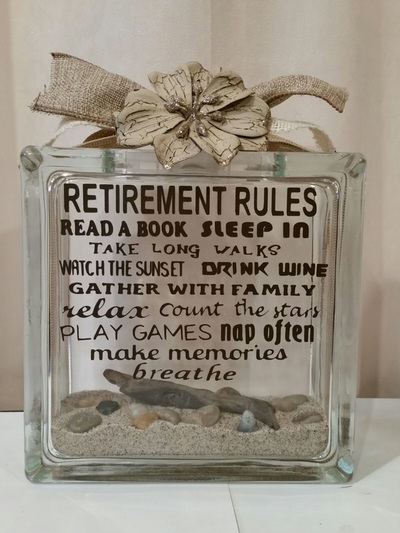 RETIREMENT RULES
READ A BOOK SLEEP IN
TAKE LONG WALKS
WATCH THE SUNSET DRINK WINE
GATHER WITH FAMILY
relax Count the stars
PLAY GAMES nap often
make memories
breathe